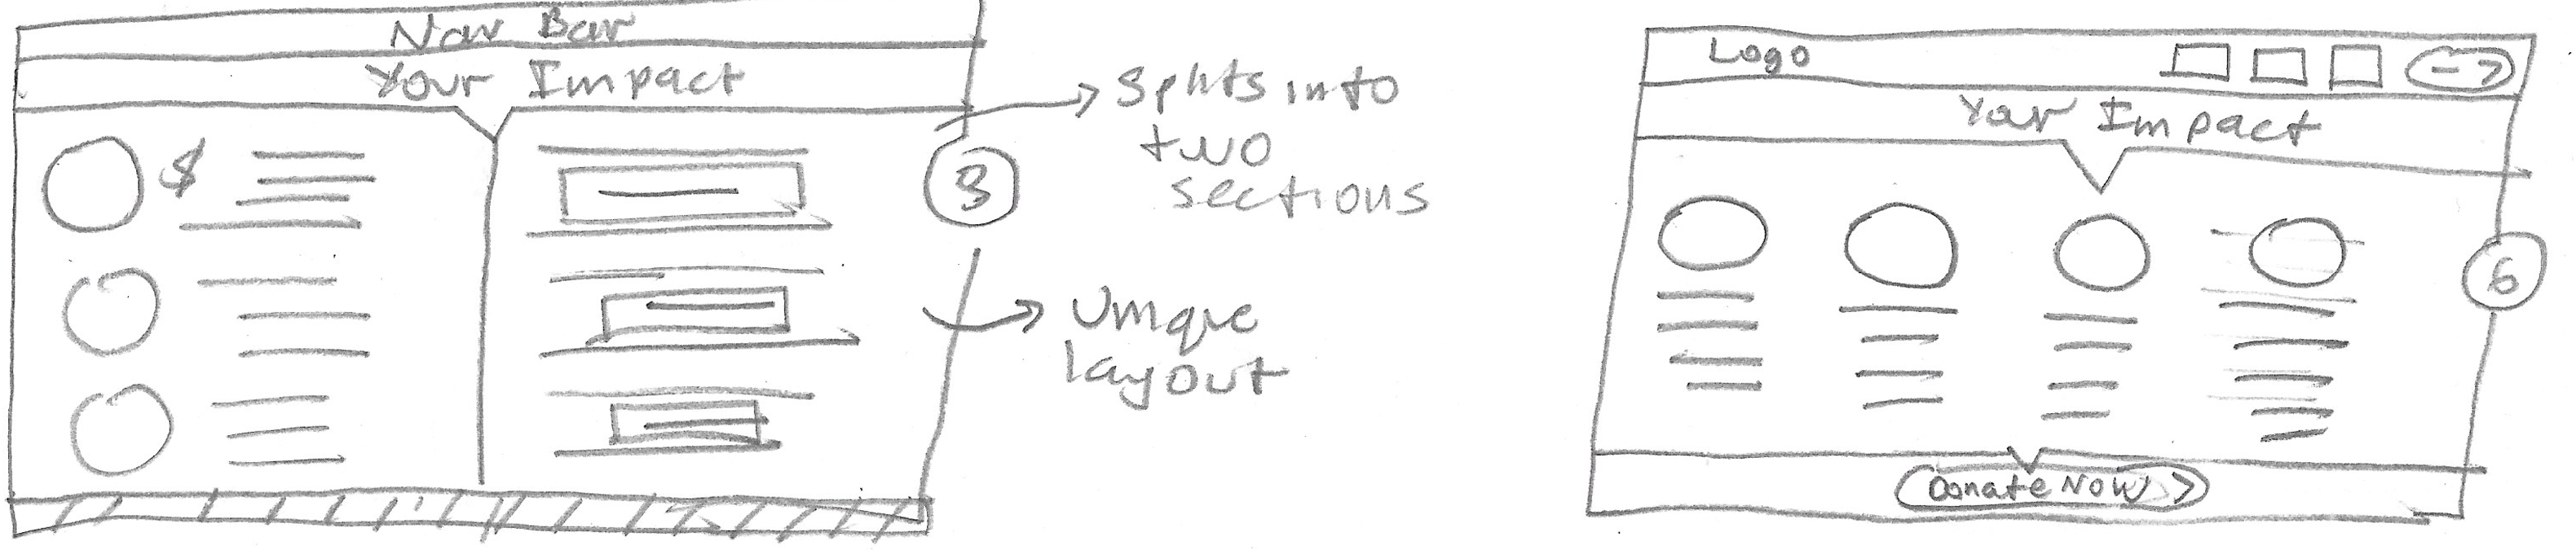 Nav Bar
Your Impact
$
3
Splits into
two
sections
Unique
layout
Logo
->
Your Impact
6
Donate Now >